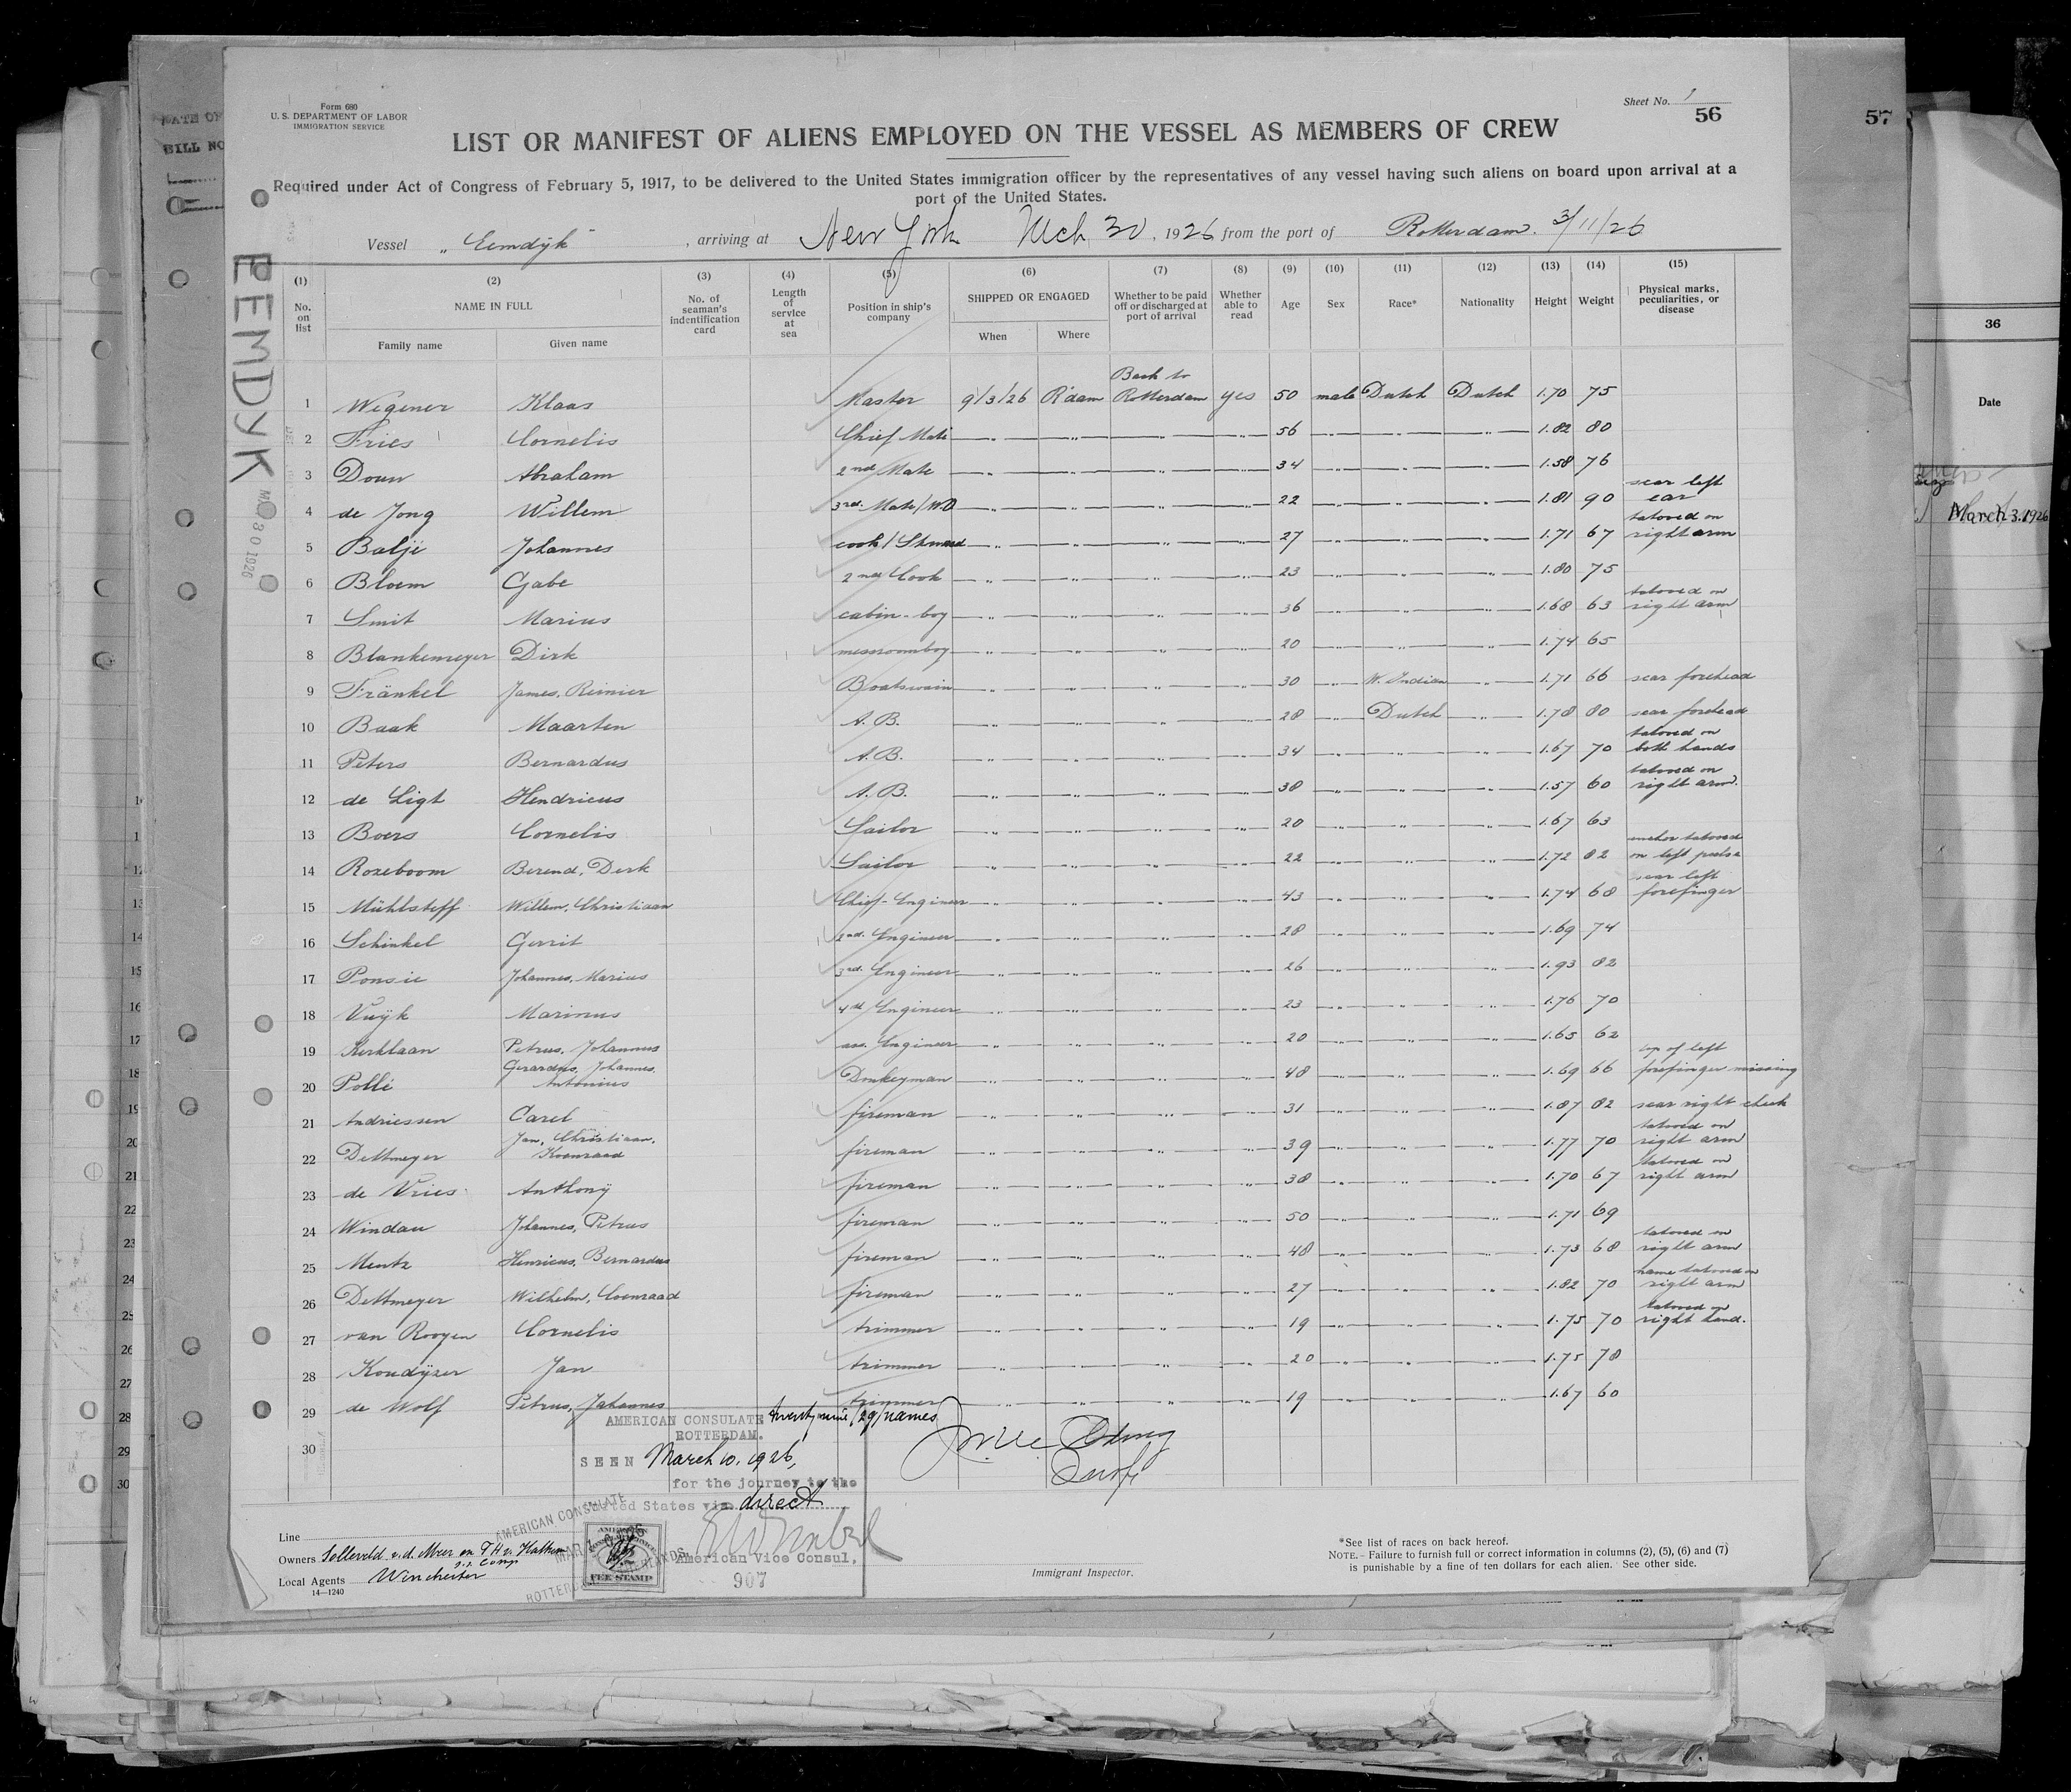 Form 680
U. S. DEPARTMENT OF LABOR
IMMIGRATION SERVICE
Sheet No. 1
56
57
LIST OR MANIFEST OF ALIENS EMPLOYED ON THE VESSEL AS MEMBERS OF CREW
Required under Act of Congress of February 5, 1917, to be delivered to the United States immigration officer by the representatives of any vessel having such aliens on board upon arrival at a
port of the United States.
Vessel „Eemdijk", arriving at New York Mch 30, 1926 from the port of Rotterdam. 3/11/26
EEMDYK
(1) No. on list
(2) NAME IN FULL
Family name Given name
(3) No. of seaman's indentification card
(4) Length of service at sea
(5) Position in ship's company
(6) SHIPPED OR ENGAGED
When Where
(7) Whether to be paid off or discharged at port of arrival
(8) Whether able to read
(9) Age
(10) Sex
(11) Race*
(12) Nationality
(13) Height
(14) Weight
(15) Physical marks, peculiarities, or disease
1 Wegener Klaas Master 9/3/26 R'dam Back to Rotterdam yes 50 male Dutch Dutch 1.70 75
2 Fries Cornelis Chief Mate — „ — 56 — „ — 1.82 80
3 Douw Abraham 2nd Mate — „ — 34 — „ — 1.58 76
4 de Jong Willem 3rd. Mate/W.O — „ — 22 — „ — 1.81 90 scar left ear
5 Balje Johannes cook/Steward — „ — 27 — „ — 1.71 67 tatoved on right arm
6 Bloem Gabe 2nd Cook — „ — 23 — „ — 1.80 75
7 Smit Marius cabin-boy — „ — 36 — „ — 1.68 63 tatoved on right arm
8 Blankemeyer Dirk messroomboy — „ — 20 — „ — 1.74 65
9 Fränkel James, Reinier Boatswain — „ — 30 — „ — W. Indian — „ — 1.71 66 scar forehead
10 Baak Maarten A.B. — „ — 28 — „ — Dutch — „ — 1.78 80 scar forehead
11 Peters Bernardus A.B. — „ — 34 — „ — 1.67 70 tatoved on both hands
12 de Ligt Hendricus A.B. — „ — 38 — „ — 1.57 60 tatoved on right arm.
13 Boers Cornelis Sailor — „ — 20 — „ — 1.67 63
14 Rozeboom Berend, Derk Sailor — „ — 22 — „ — 1.72 82 anchor tatoved on left pulse
15 Mühlsteff Willem, Christiaan Chief-Engineer — „ — 43 — „ — 1.74 68 scar left forefinger
16 Schinkel Gerrit 2nd. Engineer — „ — 28 — „ — 1.69 74
17 Ponsie Johannes, Marius 3rd. Engineer — „ — 26 — „ — 1.93 82
18 Vuijk Marinus 4th Engineer — „ — 23 — „ — 1.76 70
19 Kerklaan Petrus, Johannes ass. Engineer — „ — 20 — „ — 1.65 62
20 Pollé Gerardus, Johannes, Antonius Donkeyman — „ — 48 — „ — 1.69 66 top of left forefinger missing
21 Andriessen Carel fireman — „ — 31 — „ — 1.87 82 scar right cheek
22 Dettmeyer Jan, Christiaan, Koenraad fireman — „ — 39 — „ — 1.77 70 tatoved on right arm
23 de Vries Anthonij fireman — „ — 38 — „ — 1.70 67 tatoved on right arm
24 Windau Johannes, Petrus fireman — „ — 50 — „ — 1.71 69
25 Mentz Henricus, Bernardus fireman — „ — 48 — „ — 1.73 68 tatoved on right arm
26 Dettmeyer Wilhelm, Coenraad fireman — „ — 27 — „ — 1.82 70 name tatoved on right arm
27 van Rooyen Cornelis trimmer — „ — 19 — „ — 1.75 70 tatoved on right hand.
28 Koudijzer Jan trimmer — „ — 20 — „ — 1.75 78
29 de Wolf Petrus, Johannes trimmer — „ — 19 — „ — 1.67 60
30
twenty nine /29/ names
AMERICAN CONSULATE
ROTTERDAM.
SEEN March 10. 1926,
for the journey to the
United States via direct
American Vice Consul,
907
AMERICAN CONSULATE
FEE STAMP
Line
Owners Solleveld v.d. Meer en T.H. v. Hattum
Local Agents Winchester
14—1240
Immigrant Inspector.
*See list of races on back hereof.
NOTE.—Failure to furnish full or correct information in columns (2), (5), (6) and (7)
is punishable by a fine of ten dollars for each alien. See other side.
36
Date
March 3. 1926